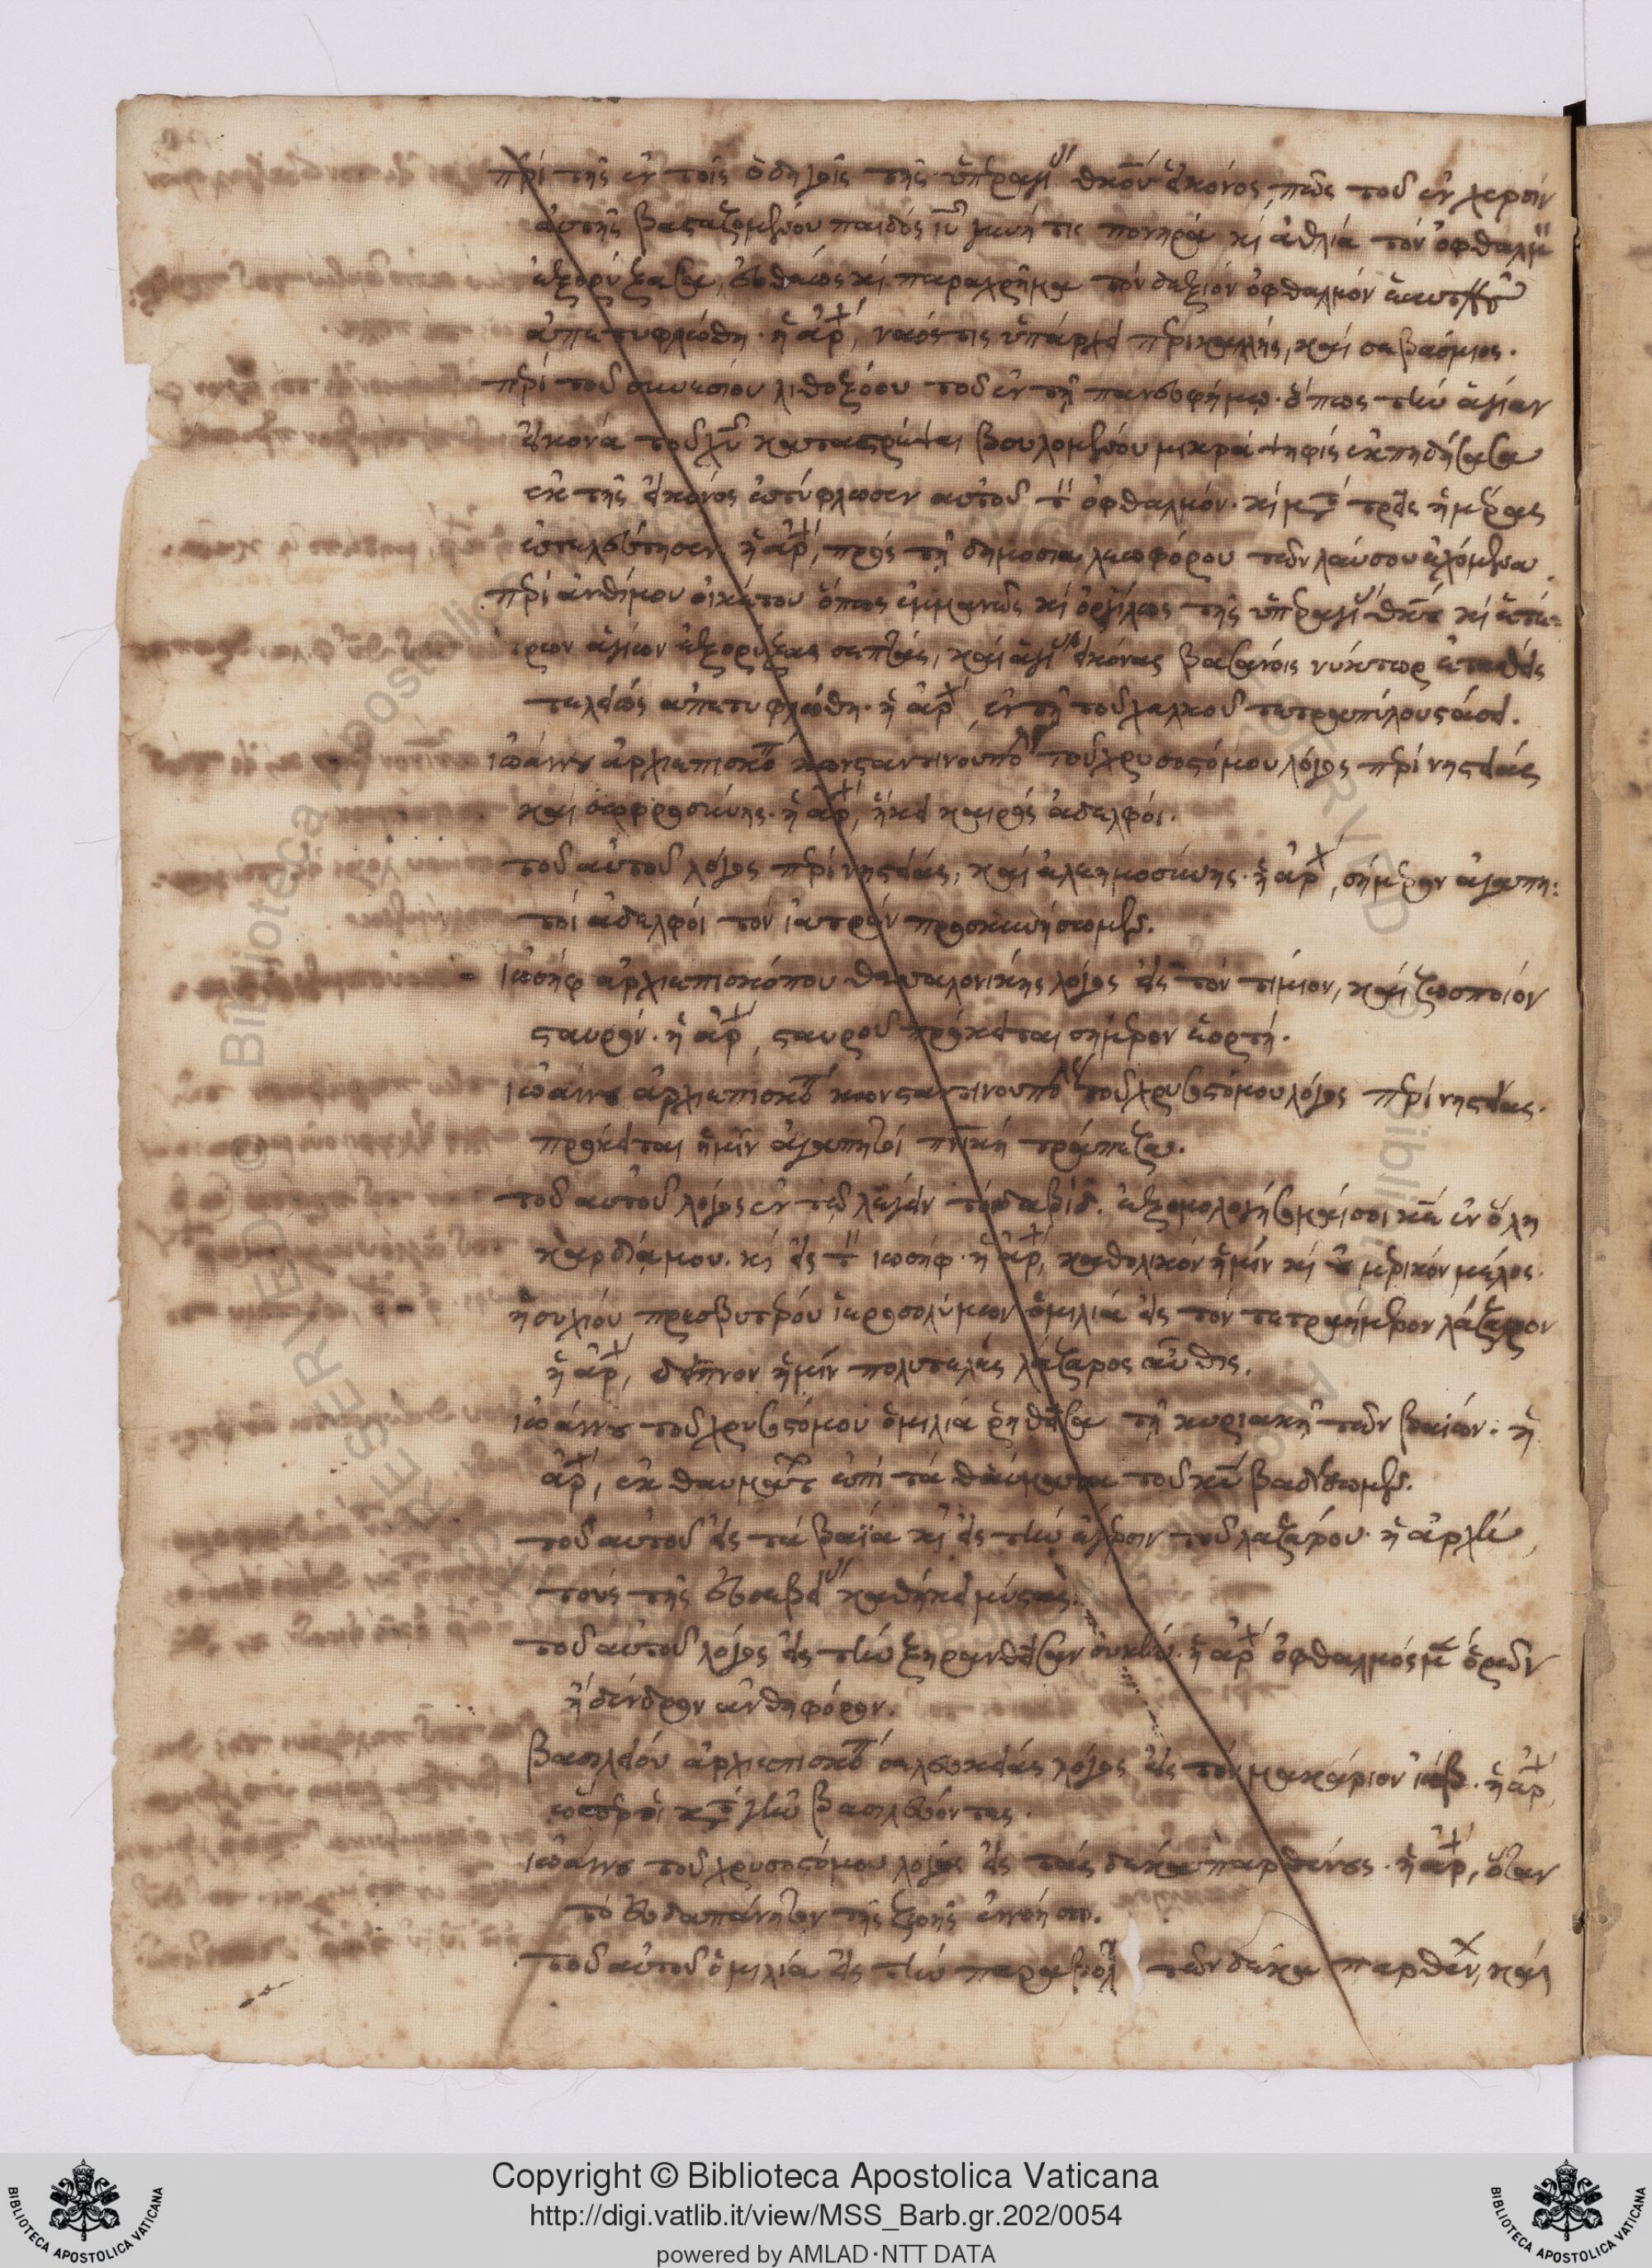 πρὶ τῆς ἐν τοῖς ὁδηγοῖς τῆς ὑπεραγί θκου εἰκόνος, πῶς τοῦ ἐν χερσὶν
αὐτῆς βασταζομένου παιδὸς ιυ γυνή τις πονηρὰ κὶ ἀθλία τὸν ὀφθαλμ
ἐξορύξασα, εὐθέως κὶ παραχρῆμα τὸν δεξιὸν ὀφθαλμὸν
ἀπετυφλώθη. ἡ ἀρχ, ναός τις ὑπάρχει περικαλλὴς, καὶ σεβάσμιος.
πρὶ τοῦ λιθοξόου τοῦ ἐν τῆ πανευφήμω. ὅπως τὴν ἁγίαν
εἰκόνα τοῦ χυ καταστρέψαι βουλομένου μικρὰ ψηφὶς ἐκπηδήσασα
ἐκ τῆς εἰκόνος ἐτύφλωσεν αὐτοῦ τ ὀφθαλμόν. κὶ μετ τρεῖς ἡμέρας
ἐτελεύτησεν. ἡ ἀρχ, πρὸς τῆ δημοσία λεωφόρου τῶν λαύσου ἐχόμενα
πρὶ ἀνθίμου οἰκέτου ὅπως ἐμμανῶς κὶ ὀργίλως τῆς ὑπεραγί θκου κὶ ἑτέ-
ρων ἁγίων ἐξορύξας σεπτὰς, καὶ ἁγί εἰκόνας βασάνοις νύκτωρ ἐταθεὶς
τελείως ἀπετυφλώθη. ἡ ἀρχ, ἐν τῆ τοῦ χαλκοῦ τετραπύλου στάσει.
ἰωάννου ἀρχιεπισκό κωνσταντινουπό τοῦ χρυσοστόμου λόγος πρὶ νηστείας
καὶ σωφροσύνης. ἡ ἀρχ, ἥκει καιρὸς ἀδελφοί.
τοῦ αὐτοῦ λόγος πρὶ νηστείας, καὶ ἐλεημοσύνης. ἡ ἀρχ, σήμερον ἀγαπη:
τοὶ ἀδελφοὶ τὸν ἰατρὸν προσκυνήσωμεν.
ἰωσὴφ ἀρχιεπισκόπου θεσσαλονίκης λόγος εἰς τὸν τίμιον, καὶ ζωοποιὸν
σταυρόν. ἡ ἀρχ, σταυροῦ πρόκειται σήμερον ἑορτή.
ἰωάννου ἀρχιεπισκό κωνσταντινουπό τοῦ χρυσοστόμου λόγος πρὶ νηστείας.
πρόκειται ἡμῖν ἀγαπητοὶ πνικὴ τράπεζα.
τοῦ αὐτοῦ λόγος ἐν τῶ λέγειν τὸν δαβίδ. ἐξομολογήσομαί σοι κε ἐν ὅλη
καρδία μου. κὶ εἰς τ ἰωσήφ. ἡ ἀρχ, καθολικὸν ἡμῖν κὶ μερικὸν μέλος.
ἡσυχίου πρεσβυτέρου ἱεροσολύμων ὁμιλία εἰς τὸν τετραήμερον λάζαρον
ἡ ἀρχ, δεῖπνον ἡμῖν πολυτελὲς λάζαρος αὖθις.
ἰωάννου τοῦ χρυσοστόμου ὁμιλία ῥηθεῖσα τῆ κυριακῆ τῶν βαΐων. ἡ
ἀρχ, ἐκ θαυμάτ ἐπὶ τὰ θαύματα τοῦ κυ βαδίσωμεν.
τοῦ αὐτοῦ εἰς τὰ βαΐα κὶ εἰς τὴν ἔγερσιν τοῦ λαζάρου. ἡ ἀρχὴ,
τοὺς τῆς εὐσεβεί καθήκει μύστας.
τοῦ αὐτοῦ λόγος εἰς τὴν ξηρανθεῖσαν συκῆν. ἡ ἀρχ ὀφθαλμὸς μ ὁρῶν
ἡ δένδρον ἀνθηφόρον.
βασιλείου ἀρχιεπισκό σελευκείας λόγος εἰς τὸν μακάριον ἰώβ. ἡ ἀρχ,
ὥσπερ οἱ κατ γῆν βασιλεύοντες.
ἰωάννου τοῦ χρυσοστόμου λόγος εἰς τὰς δέκα παρθένους. ἡ ἀρχ, ὅταν
τὸ εὐδαπάνητον τῆς ζωῆς ἐννοήσω.
τοῦ αὐτοῦ ὁμιλία εἰς τὴν παραβολ τῶν δέκα παρθέν, καὶ
Copyright © Biblioteca Apostolica Vaticana
http://digi.vatlib.it/view/MSS_Barb.gr.202/0054
powered by AMLAD·NTT DATA